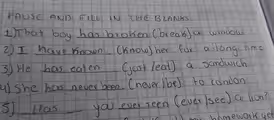 PAUSE AND FILL IN THE BLANKS
1) That boy has broken (break) a window
2) I have known (know) her for a long time
3) He has eaten (just/eat) a sandwich
4) She has never been (never/be) to London
5) Has you ever seen (ever/see) a lion?
homework